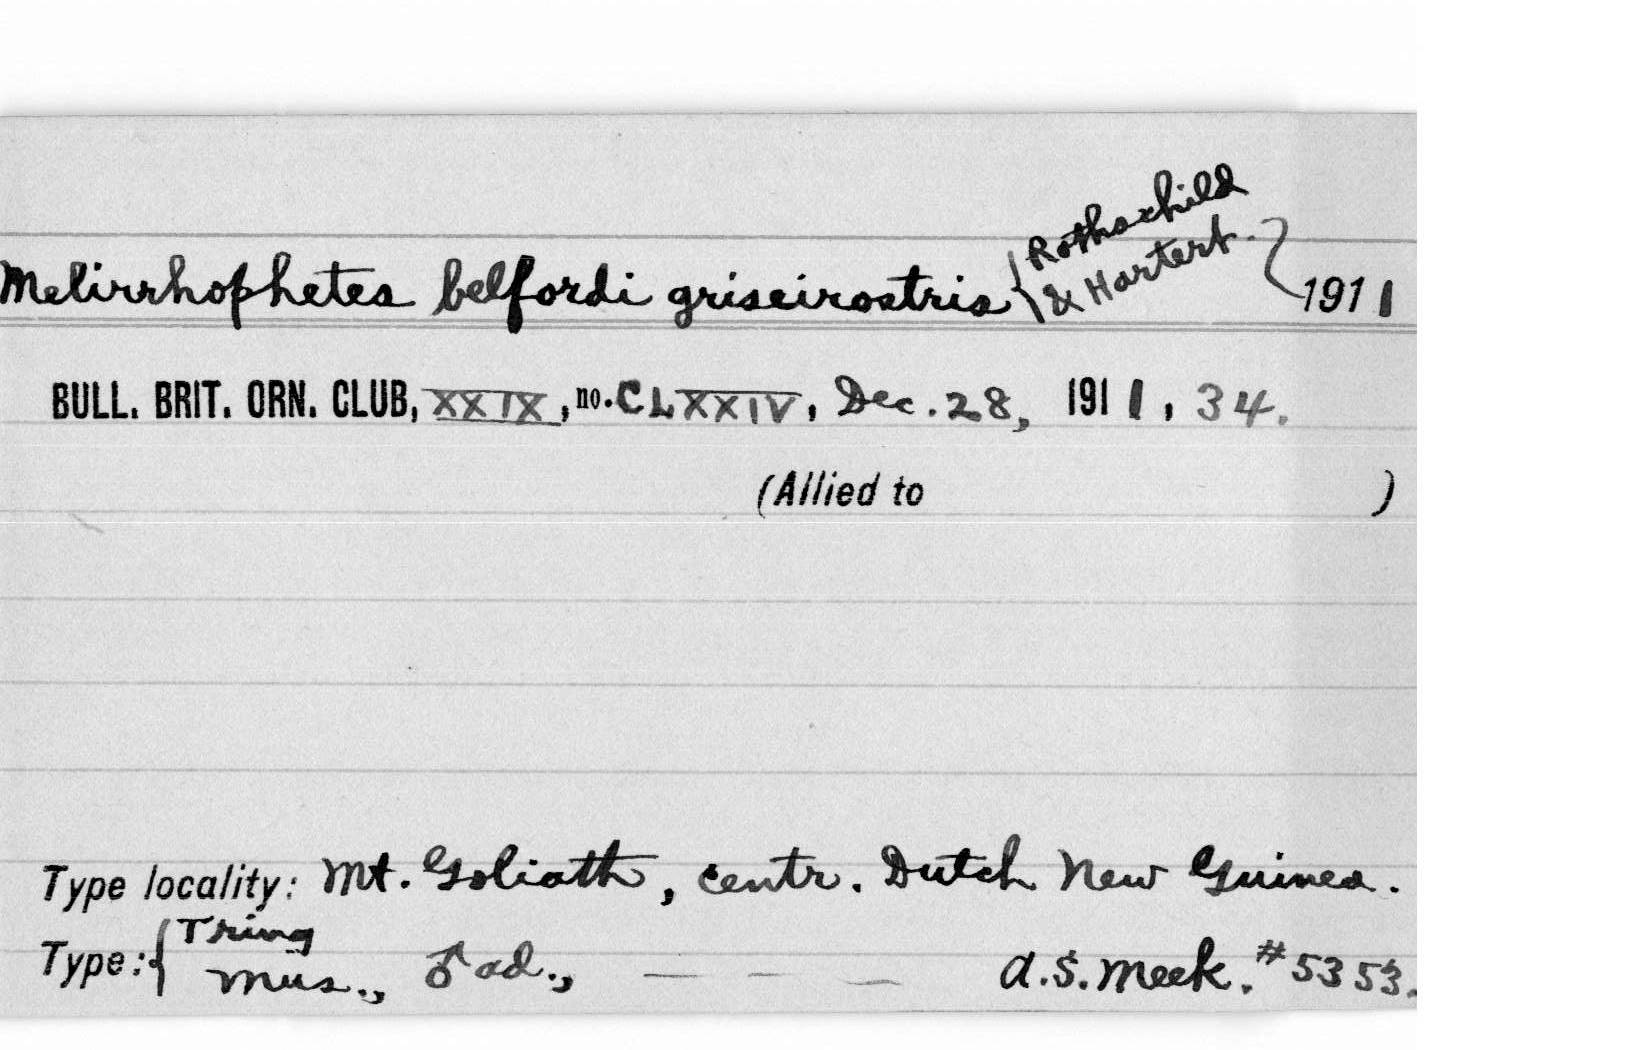 Melirrhophetes belfordi griseirostris { Rothschild & Hartert. } 1911
BULL. BRIT. ORN. CLUB, XXIX, no. CLXXIV, Dec. 28, 1911, 34.
(Allied to )
Type locality: Mt. Goliath, centr. Dutch New Guinea.
Type: { Tring Mus., ♂ ad., — — — A.S. Meek. #5353.